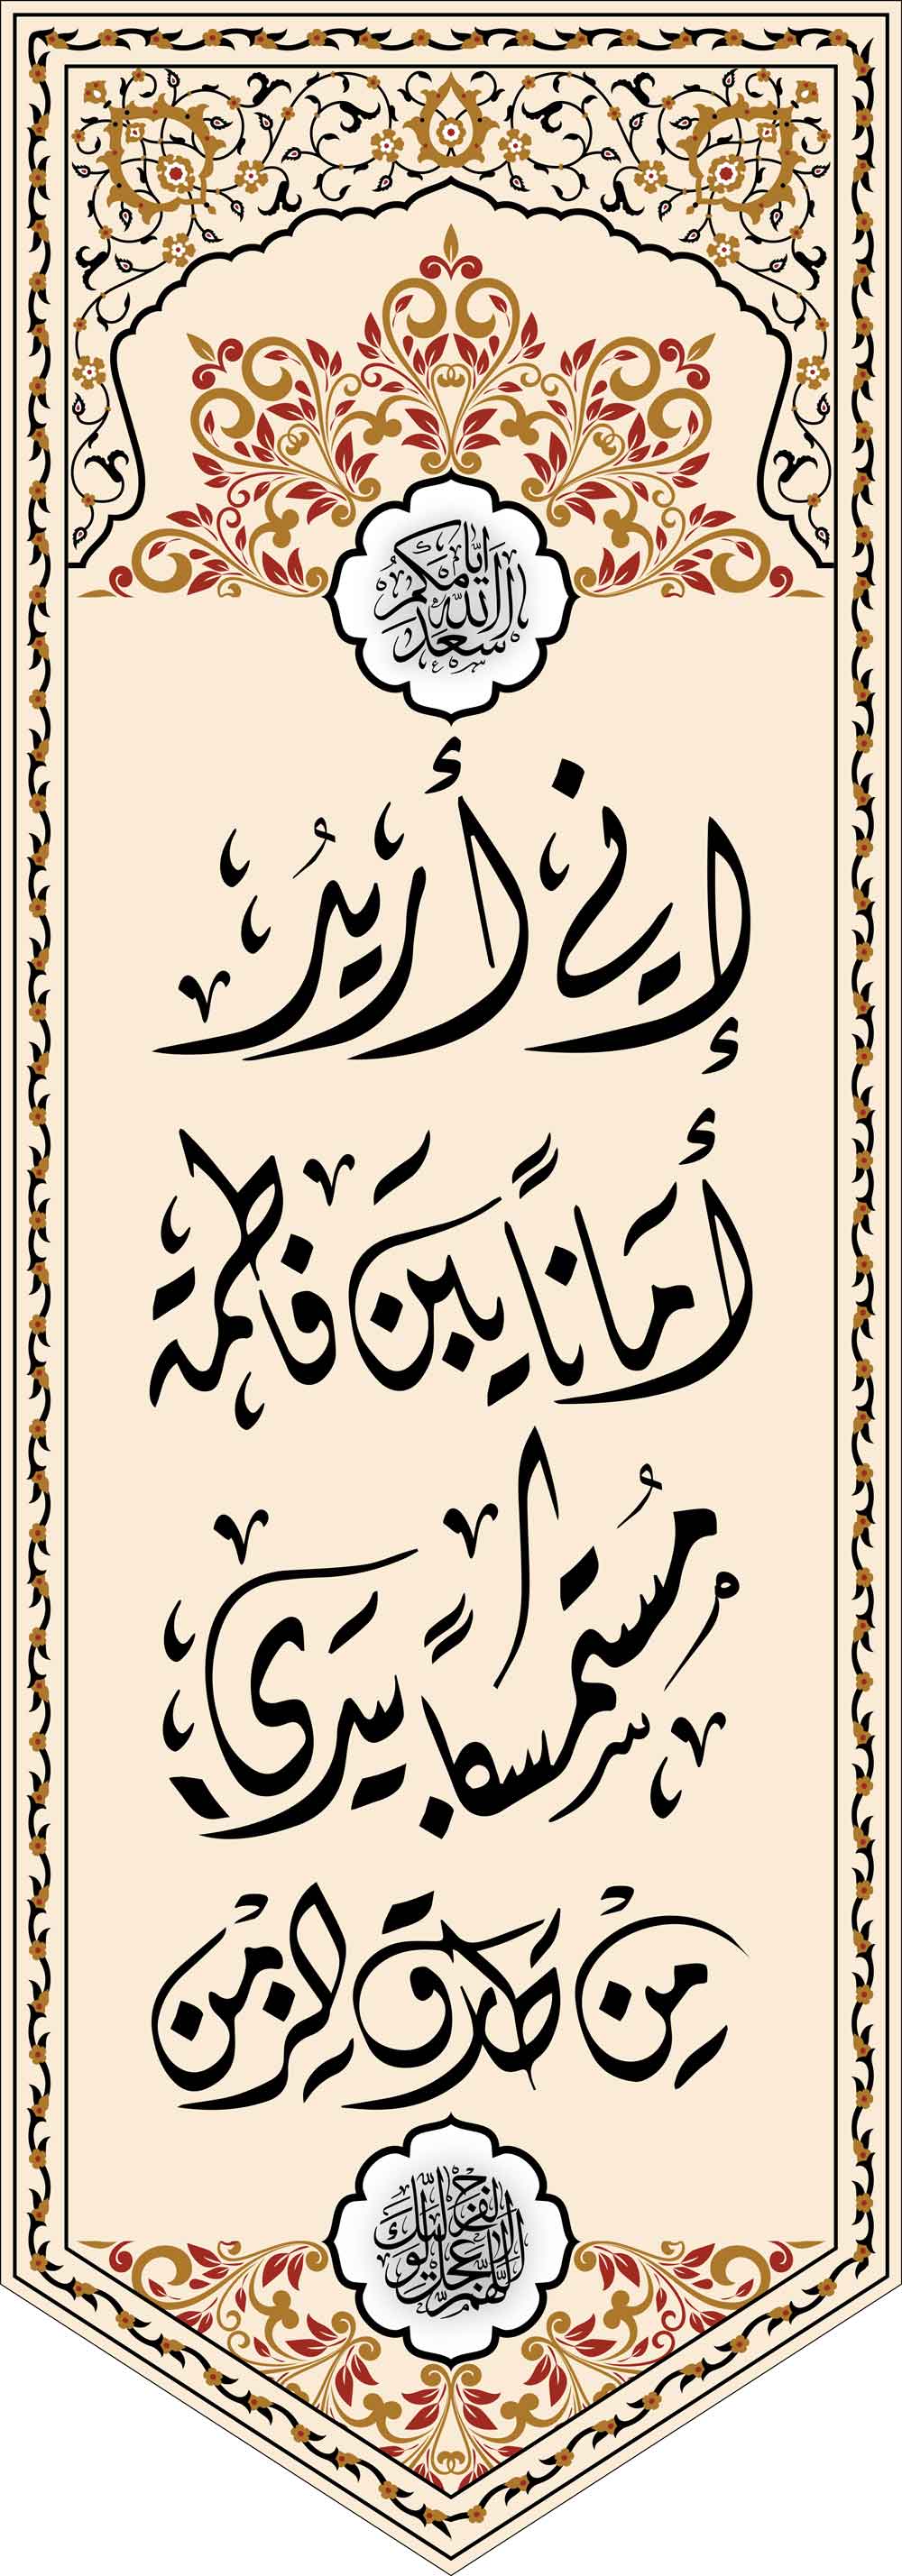 اسعد الله ايامكم
إني أريدُ
أَمَاناً يَبنَ فاطمة
مُستمسكاً بيَدي
مِنْ طارق الزمنْ
اللهم عجل لوليك الفرج